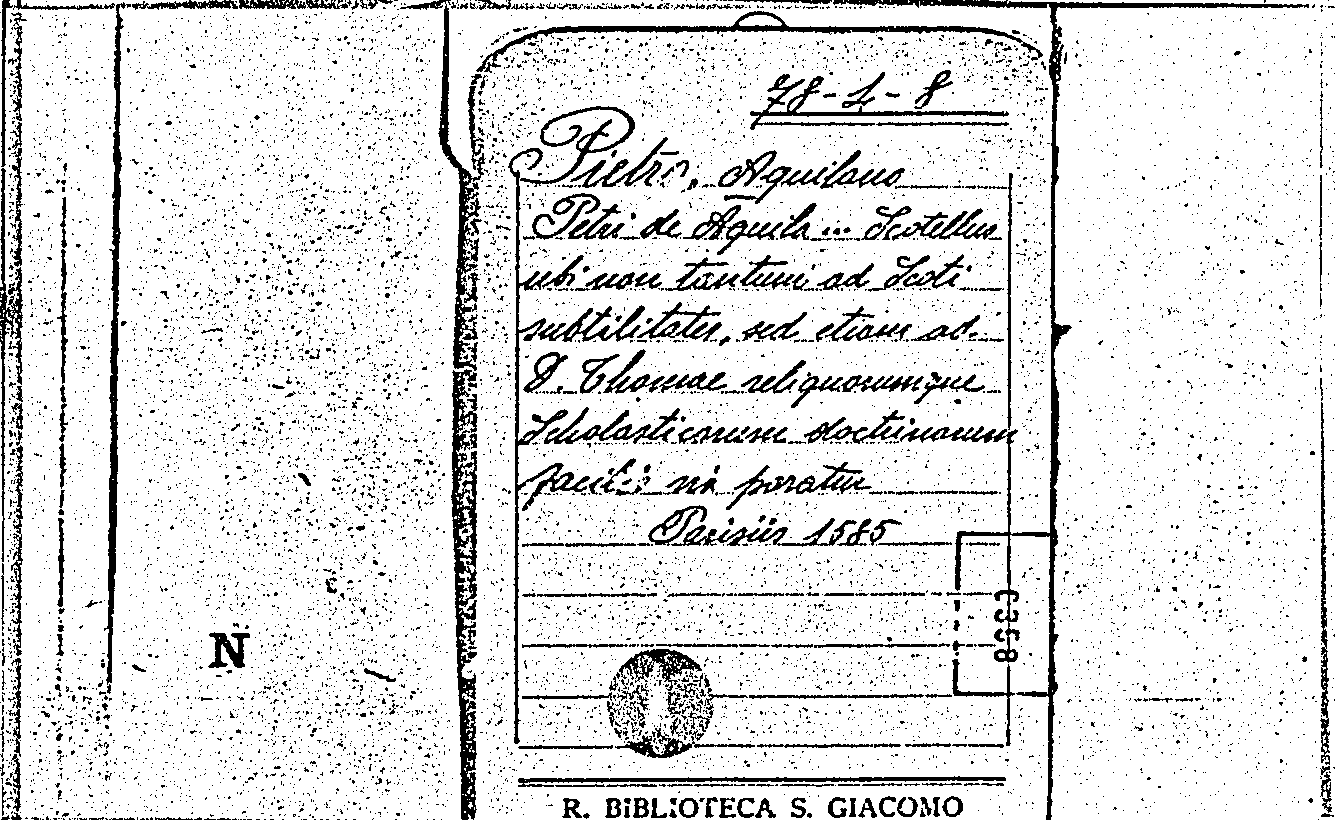 78-4-8
Pietro, Aquilano
Petri de Aquila ... Scotellus
ubi non tantum ad Scoti
subtilitates, sed etiam ad
D. Thomae reliquorumque
Scholasticorum doctrinarum
facilis via paratur
Parisiis 1585
N
R. BIBLIOTECA S. GIACOMO